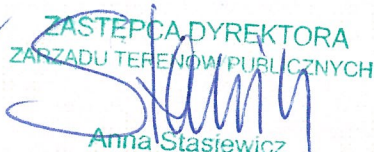 ZASTĘPCA DYREKTORA
ZARZĄDU TERENÓW PUBLICZNYCH
Anna Stasiewicz